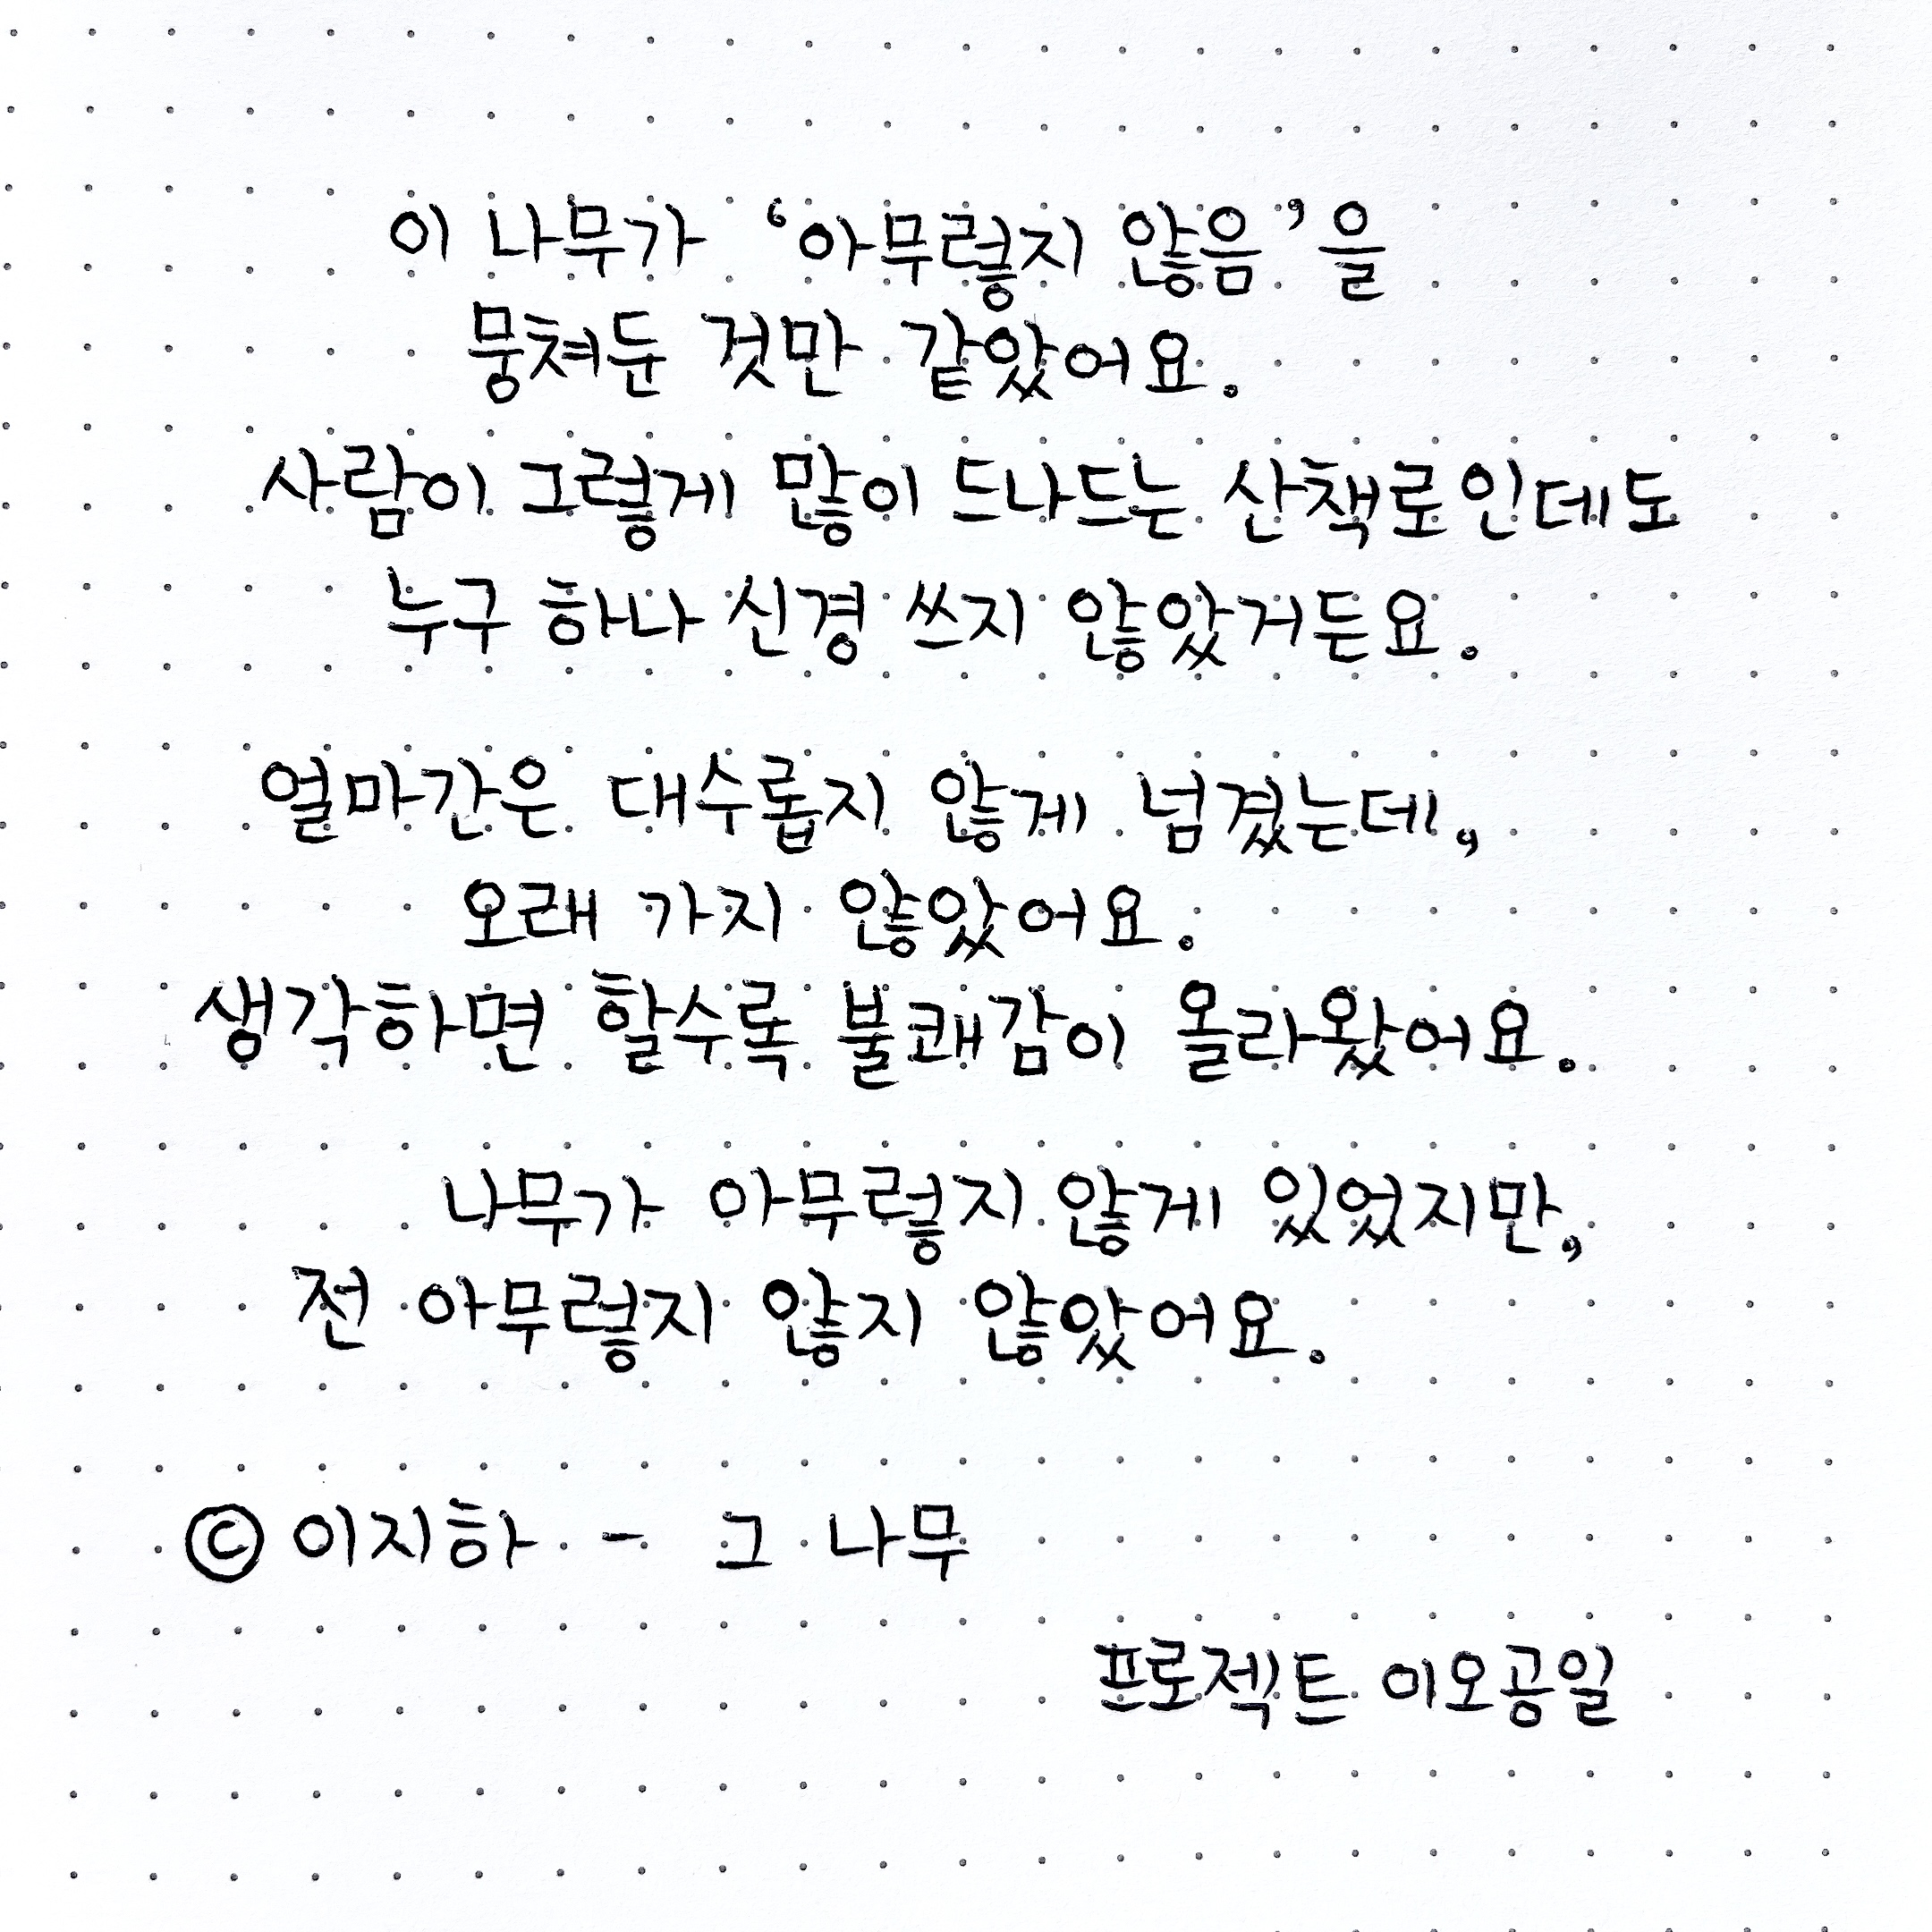 이 나무가 ‘아무렇지 않음’을
뭉쳐둔 것만 같았어요.
사람이 그렇게 많이 드나드는 산책로인데도
누구 하나 신경 쓰지 않았거든요.
얼마간은 대수롭지 않게 넘겼는데,
오래 가지 않았어요.
생각하면 할수록 불쾌감이 올라왔어요.
나무가 아무렇지 않게 있었지만,
전 아무렇지 않지 않았어요.
© 이지하 - 그 나무
프로젝트 이오공일